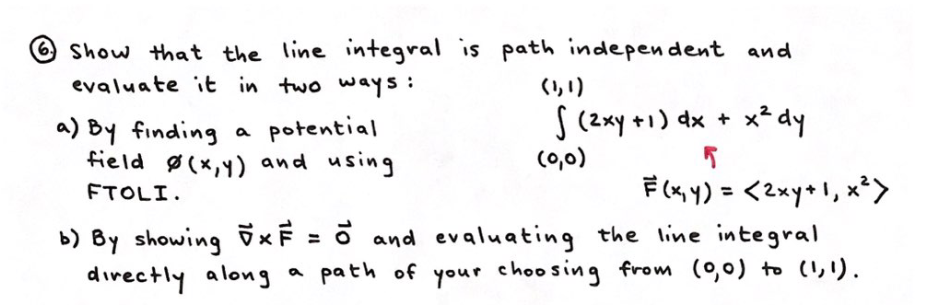 ⑥ Show that the line integral is path independent and
evaluate it in two ways:
(1,1)
∫ (2xy+1) dx + x² dy
(0,0)
a) By finding a potential
field ø(x,y) and using
FTOLI.
F⃗(x,y) = <2xy+1, x²>
b) By showing ∇⃗×F⃗ = 0⃗ and evaluating the line integral
directly along a path of your choosing from (0,0) to (1,1).